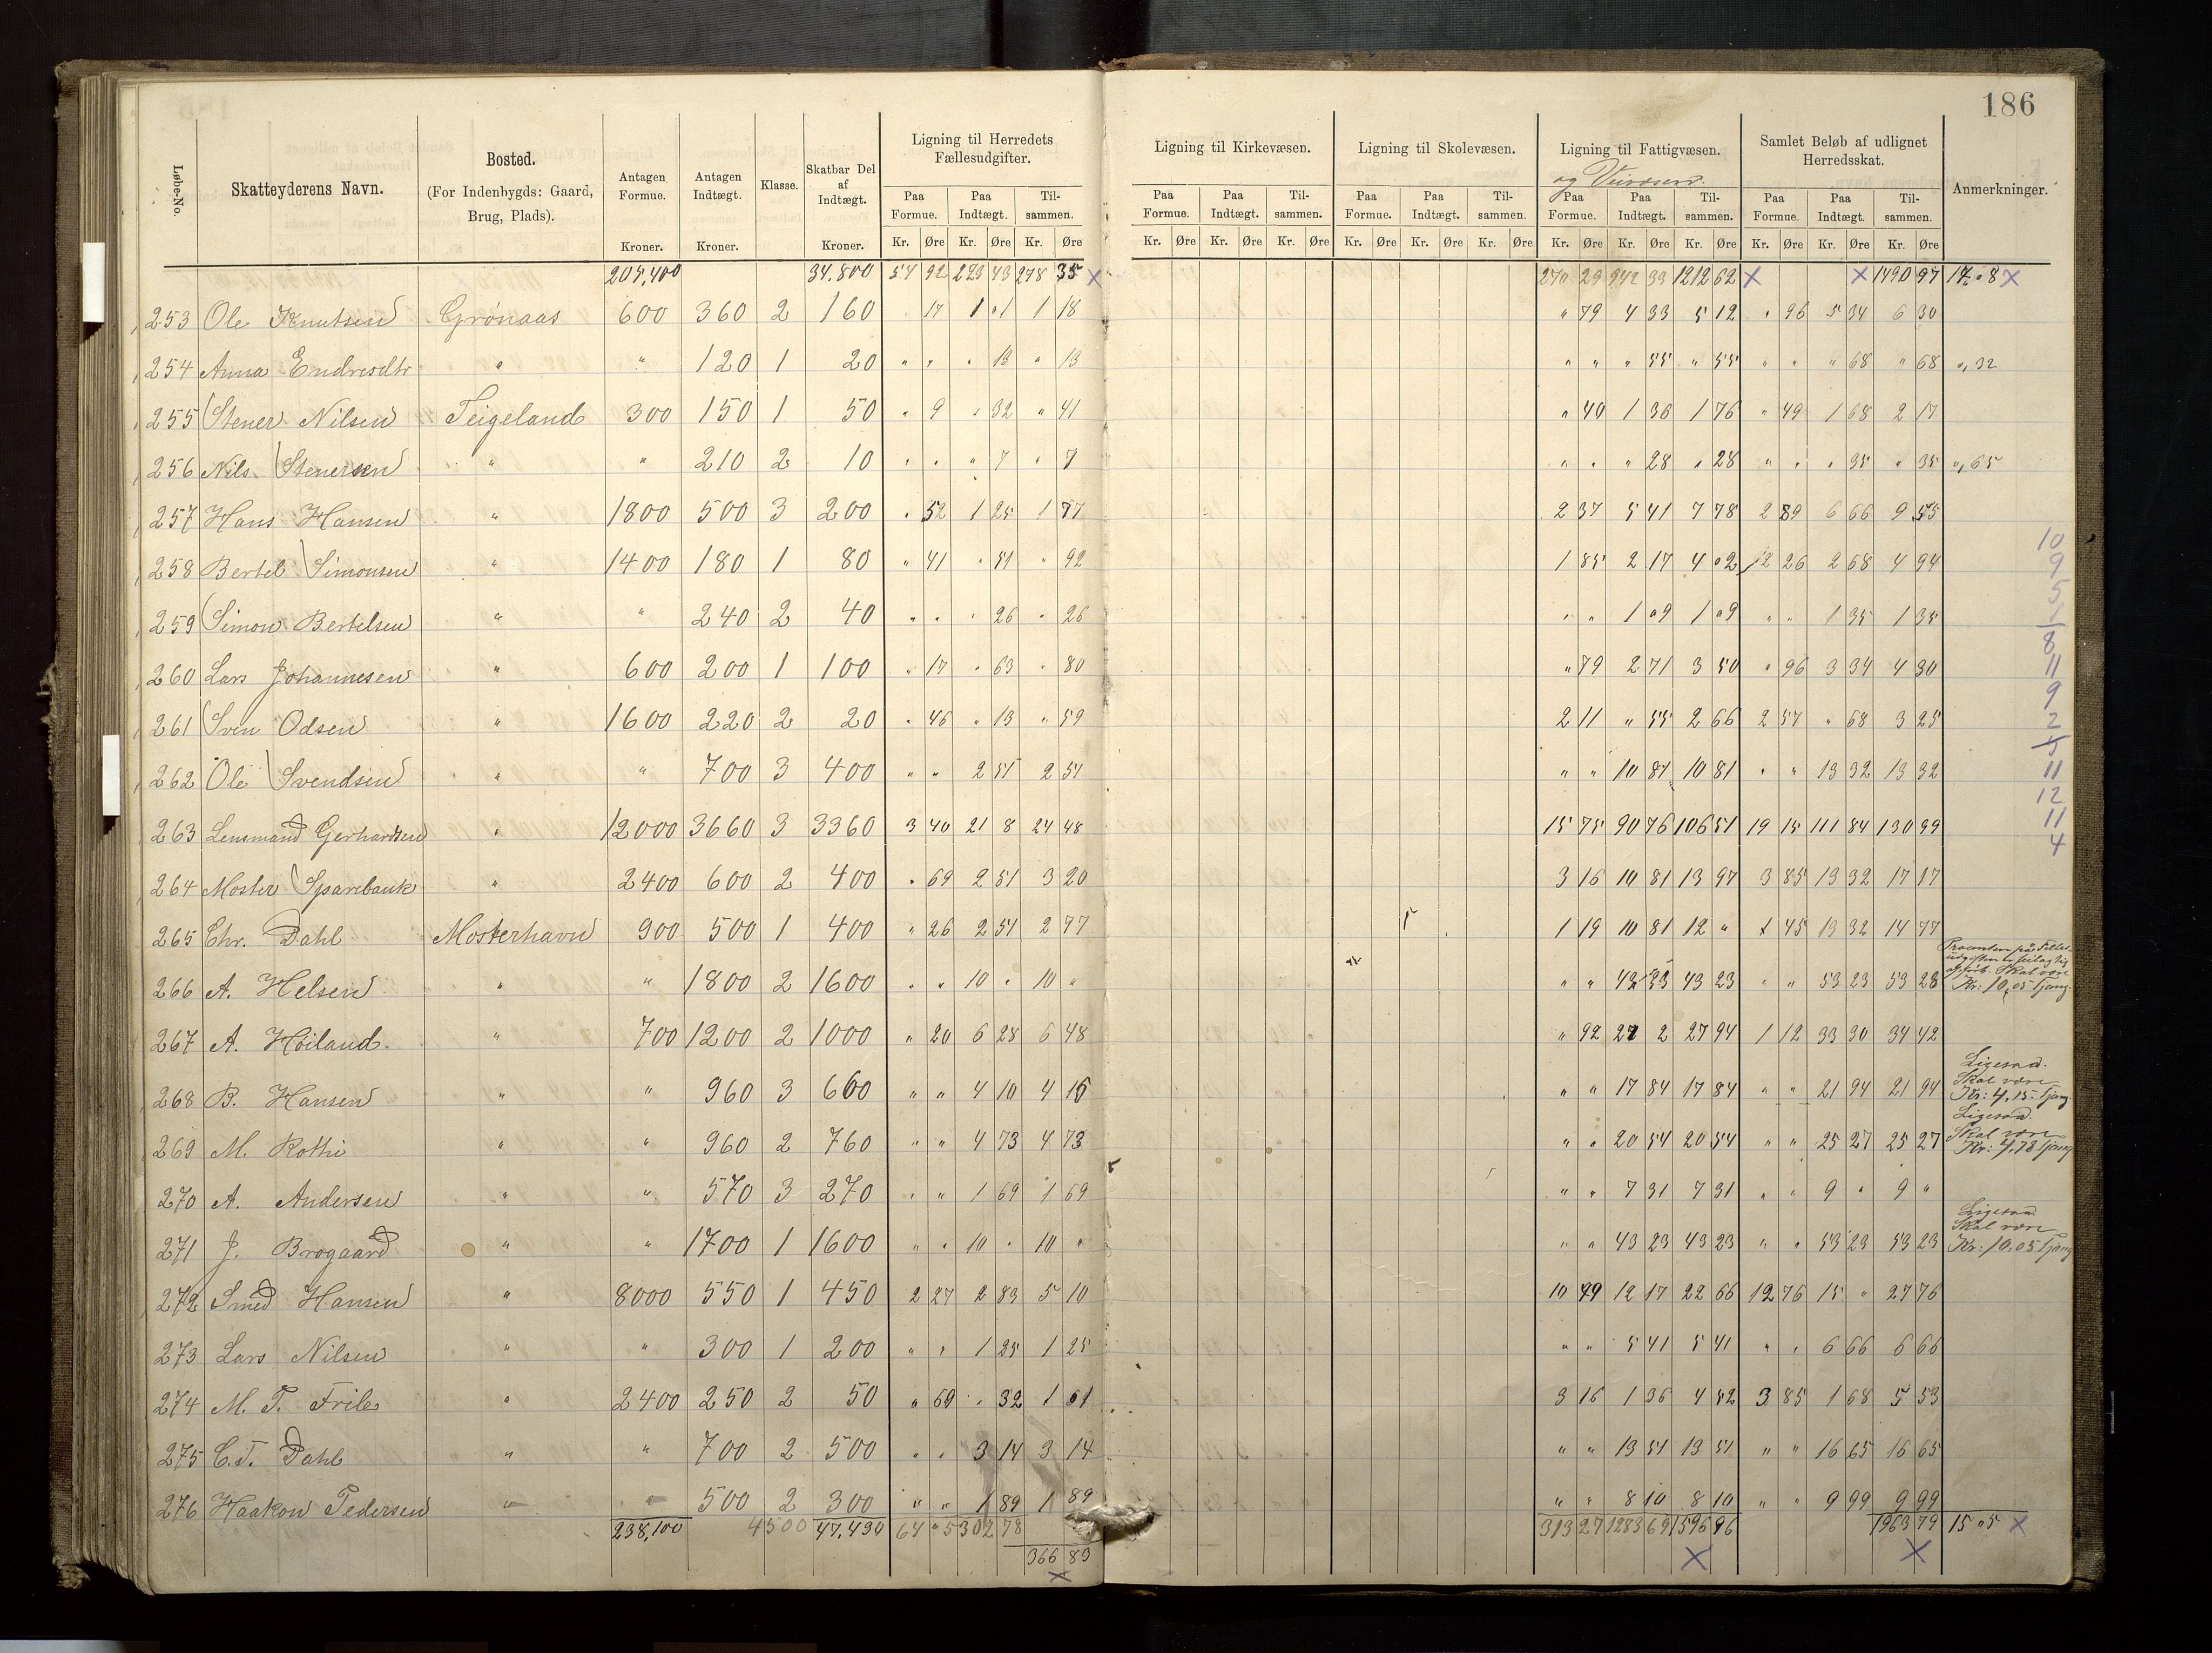 186
Løbe-No. | Skatteyderens Navn. | Bosted. (For Indenbygds: Gaard, Brug, Plads). | Antagen Formue. Kroner. | Antagen Indtægt. Kroner. | Klasse. | Skatbar Del af Indtægt. Kroner. | Ligning til Herredets Fællesudgifter. | Ligning til Kirkevæsen. | Ligning til Skolevæsen. | Ligning til Fattigvæsen. og Veivæsen. | Samlet Beløb af udlignet Herredsskat. | Anmerkninger.
Paa Formue. | Paa Indtægt. | Tilsammen. | Paa Formue. | Paa Indtægt. | Tilsammen. | Paa Formue. | Paa Indtægt. | Tilsammen. | Paa Formue. | Paa Indtægt. | Tilsammen. | Paa Formue. | Paa Indtægt. | Tilsammen.
Kr. Øre Kr. Øre Kr. Øre | Kr. Øre Kr. Øre Kr. Øre | Kr. Øre Kr. Øre Kr. Øre | Kr. Øre Kr. Øre Kr. Øre | Kr. Øre Kr. Øre Kr. Øre
34.800 54 92 223 43 278 35 X 270 29 942 33 1212 62 X X 1490 97 17 " 8 X
253 Ole Knutsen Grønaas 600 360 2 160 " 17 1 "1 1 18 " 79 4 33 5 12 " 96 5 34 6 30
254 Anna Endresdtr " " 120 1 20 " " " 13 " 13 " " " 55 " 55 " " " 68 " 68 ",32
255 Stener Nilsen Teigeland 300 150 1 50 " 9 " 32 " 41 " 40 1 36 1 76 " 49 1 68 2 17
256 Nils Stenersen " " 210 2 10 " " " 7 " 7 " " " 28 " 28 " " " 35 " 35 ",65
257 Hans Hansen " 1800 500 3 200 " 52 1 25 1 77 2 37 5 41 7 78 2 89 6 66 9 55
258 Bertel Simonsen " 1400 180 1 80 " 41 " 51 " 92 1 85 2 17 4 "2 2 26 2 68 4 94
259 Simon Bertelsen " " 240 2 40 " " " 26 " 26 " " 1 "9 1 "9 " " 1 35 1 35
260 Lars Johannesen " 600 200 1 100 " 17 " 63 " 80 " 79 2 71 3 50 " 96 3 34 4 30
261 Sven Odsen " 1600 220 2 20 " 46 " 13 " 59 2 11 " 55 2 66 2 57 " 68 3 25
262 Ole Svendsen " " 700 3 400 " " 2 51 2 51 " " 10 81 10 81 " " 13 32 13 32
263 Lensmand Gerhardsen " 12000 3660 3 3360 3 40 21 8 24 48 15 75 90 76 106 51 19 15 111 84 130 99
264 Moster Sparebank " 2400 600 2 400 " 69 2 51 3 20 3 16 10 81 13 97 3 85 13 32 17 17
265 Chr. Dahl Mosterhavn 900 500 1 400 " 26 2 51 2 77 1 19 10 81 12 " 1 45 13 32 14 77
266 A. Helsen " " 1800 2 1600 " " 10 " 10 " " " 43 23 43 23 " " 53 23 53 23 Skal være Kr: 10,05
267 A. Höiland " 700 1200 2 1000 " 20 6 28 6 48 " 92 27 2 27 94 1 12 33 30 34 42
268 B. Hansen " " 960 3 660 " " 4 10 4 10 " " 17 84 17 84 " " 21 94 21 94 Ligesaa. Skal være Kr: 4,15
269 M. Rothi " " 960 2 760 " " 4 73 4 73 " " 20 54 20 54 " " 25 27 25 27 Ligesaa. Skal være Kr: 4,78
270 A. Andersen " " 570 3 270 " " 1 69 1 69 " " 7 31 7 31 " " 9 " 9 "
271 J. Brogaard " " 1700 1 1600 " " 10 " 10 " " " 43 23 43 23 " " 53 23 53 23 Ligesaa. Skal være Kr: 10,05
272 Smed Hansen " 8000 550 1 450 2 27 2 83 5 10 10 49 12 17 22 66 12 76 15 " 27 76
273 Lars Nilsen " " 300 1 200 " " 1 25 1 25 " " 5 41 5 41 " " 6 66 6 66
274 M. T. Friles " 2400 250 2 50 " 69 " 32 1 01 3 16 1 36 4 52 3 85 1 68 5 53
275 C. T. Dahl " " 700 2 500 " " 3 14 3 14 " " 13 51 13 51 " " 16 65 16 65
276 Haakon Pedersen " " 500 2 300 " " 1 89 1 89 " " 8 10 8 10 " " 9 99 9 99
238,100 4500 47,430 64 "5 302 78 313 27 1283 69 1596 96 1963 79 15 "5 X
366 83 X X
X
10
9
5
1
8
11
9
2
5
11
12
11
4